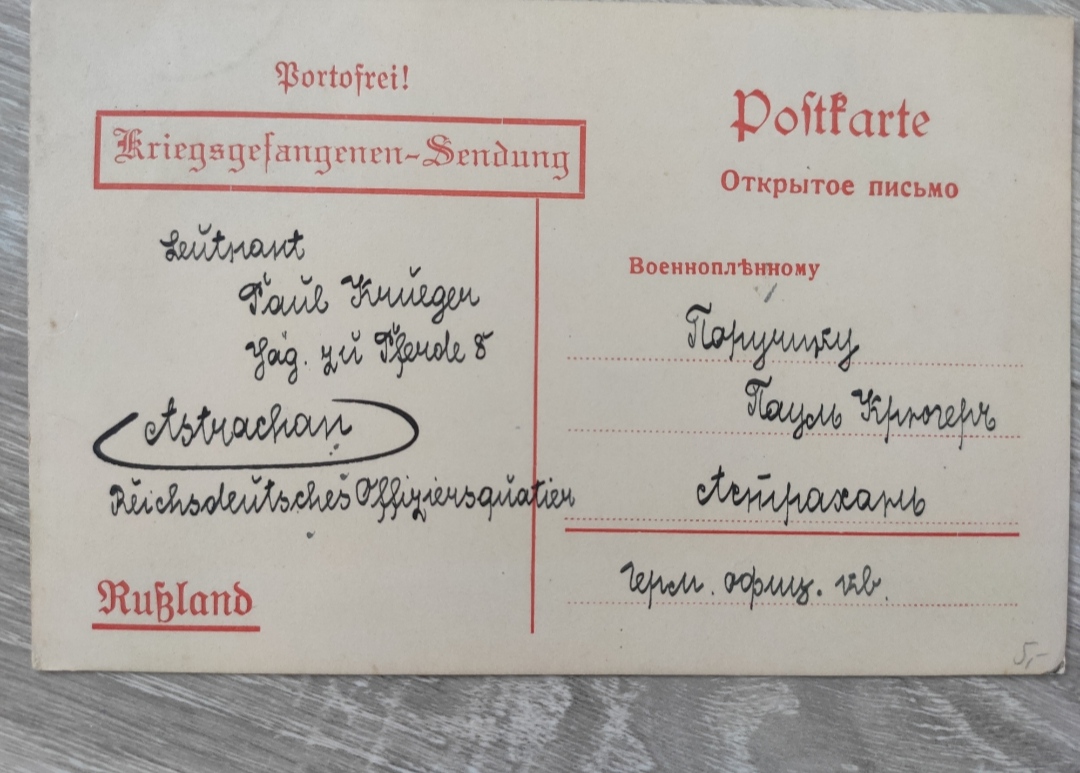 Portofrei!
Kriegsgefangenen-Sendung
Postkarte
Открытое письмо
Leutnant
Paul Krueger
Jäg. zu Pferde 8
Astrachan
Reichsdeutsches Offiziersquatier
Rußland
Военноплѣнному
Поручику
Пауль Крюгеръ
Астрахань
герм. офиц. кв.
5,-